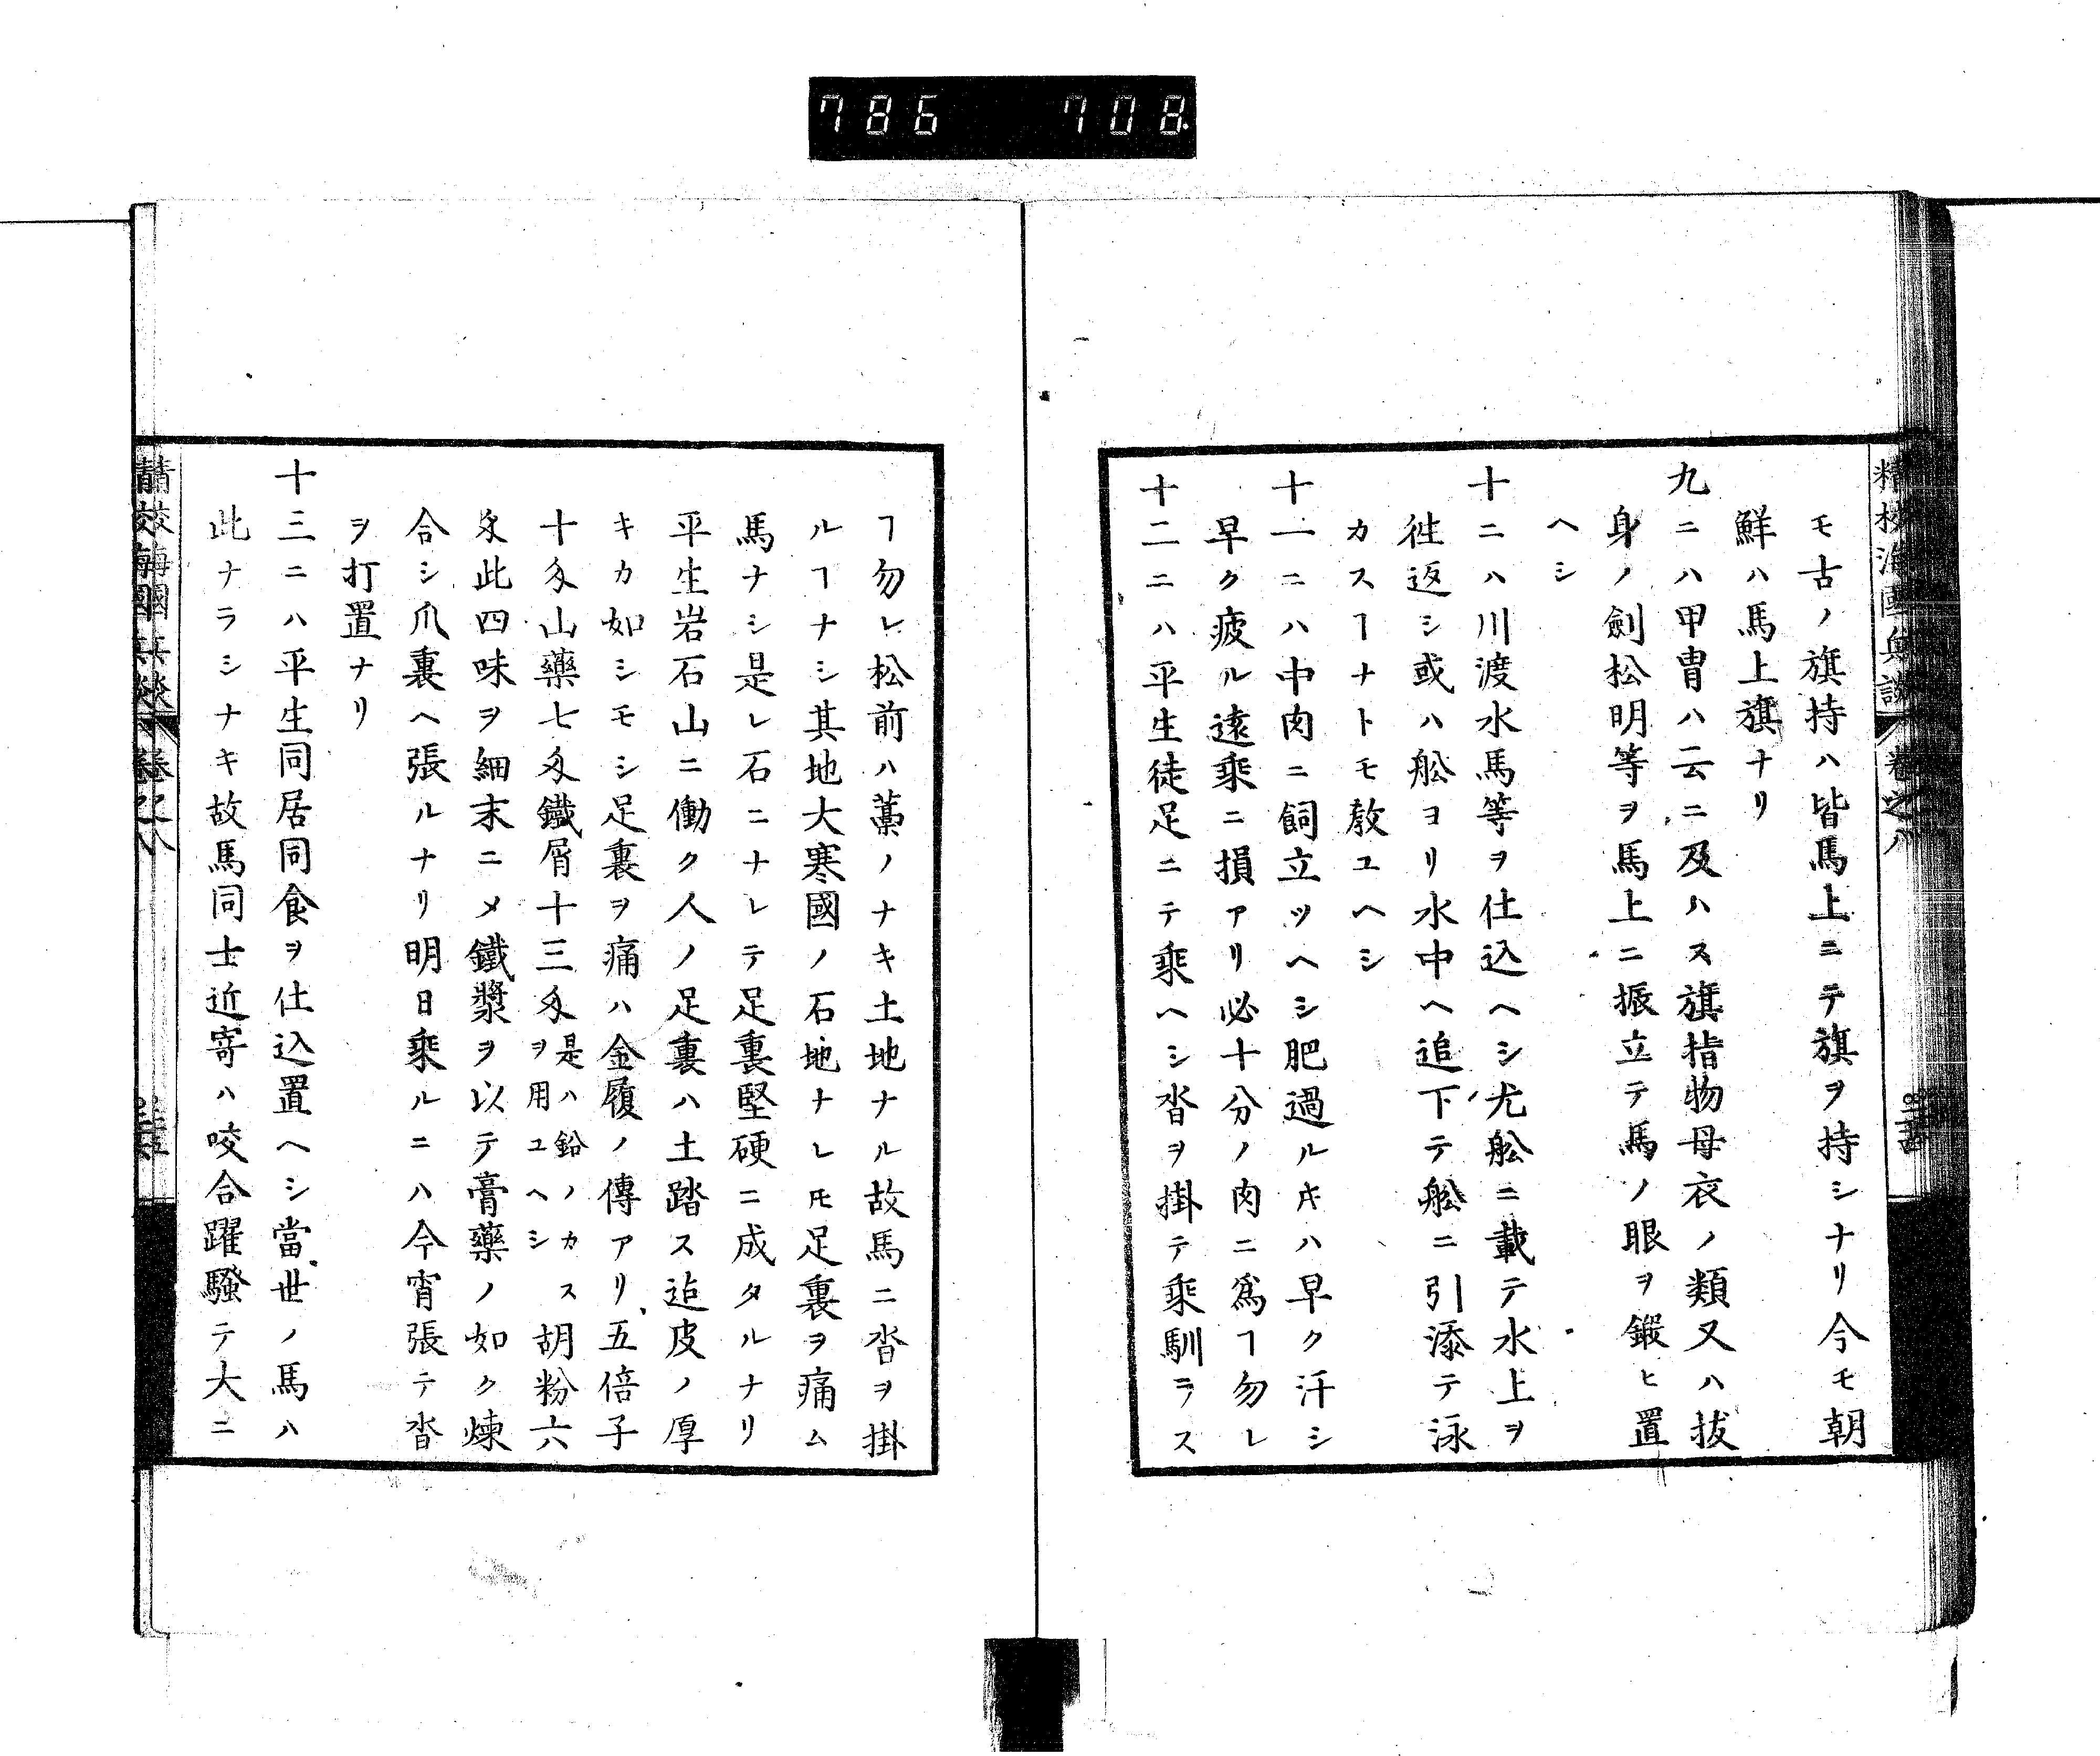 786 708
精校海國兵談 卷之八
モ古ノ旗持ハ皆馬上ニテ旗ヲ持シナリ今モ朝
鮮ハ馬上旗ナリ
九ニハ甲冑ハ云ニ及ハス旗指物母衣ノ類又ハ拔
身ノ劍松明等ヲ馬上ニ振立テ馬ノ眼ヲ鍛ヒ置
ヘシ
十ニハ川渡水馬等ヲ仕込ヘシ尤舩ニ載テ水上ヲ
徃返シ或ハ舩ヨリ水中ヘ追下テ舩ニ引添テ泳
カスヿナトモ敎ユヘシ
十一ニハ中肉ニ飼立ツヘシ肥過ルキハ早ク汗シ
早ク疲ル遠乘ニ損アリ必十分ノ肉ニ爲ヿ勿レ
十二ニハ平生徒足ニテ乘ヘシ沓ヲ掛テ乘馴ラス
ヿ勿レ松前ハ藁ノナキ土地ナル故馬ニ沓ヲ掛
ルヿナシ其地大寒國ノ石地ナレ𪜈足裏ヲ痛ム
馬ナシ是レ石ニナレテ足裏堅硬ニ成タルナリ
平生岩石山ニ働ク人ノ足裏ハ土踏ス迠皮ノ厚
キカ如シモシ足裏ヲ痛ハ金履ノ傳アリ五倍子
十匁山藥七匁鐵屑十三匁是ハ鉛ノカスヲ用ユヘシ胡粉六
匁此四味ヲ細末ニメ鐵漿ヲ以テ膏藥ノ如ク煉
合シ爪裏ヘ張ルナリ明日乘ルニハ今宵張テ沓
ヲ打置ナリ
十三ニハ平生同居同食ヲ仕込置ヘシ當世ノ馬ハ
此ナラシナキ故馬同士近寄ハ咬合躍騷テ大ニ
精校海國兵談 卷之八